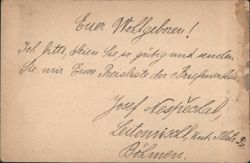 Euer Wohlgeboren!
Ich bitte, seien Sie so gütig und senden
Sie mir Eure Preisliste der Briefmarken
Josef
Leitomischl,
Böhmen.